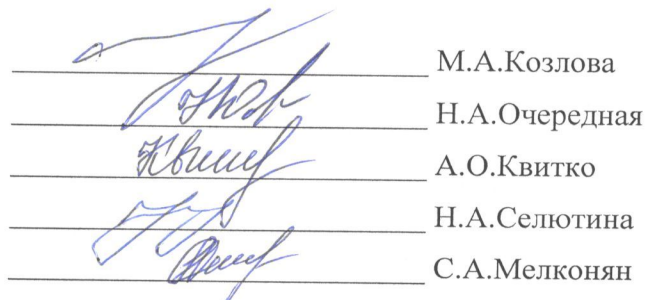 М.А.Козлова
Н.А.Очередная
А.О.Квитко
Н.А.Селютина
С.А.Мелконян